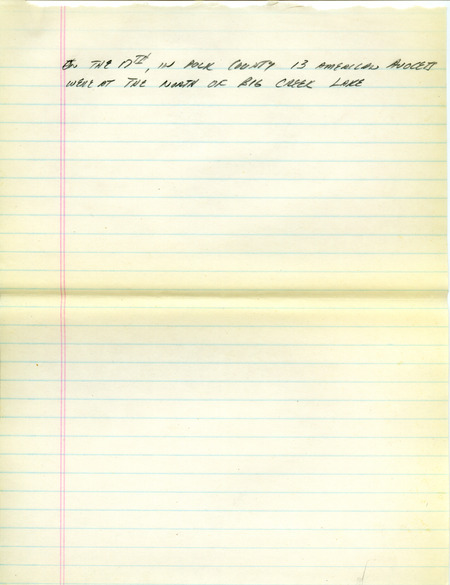 On the 17th, in Polk County 13 American Avocets
were at the north of Big Creek Lake